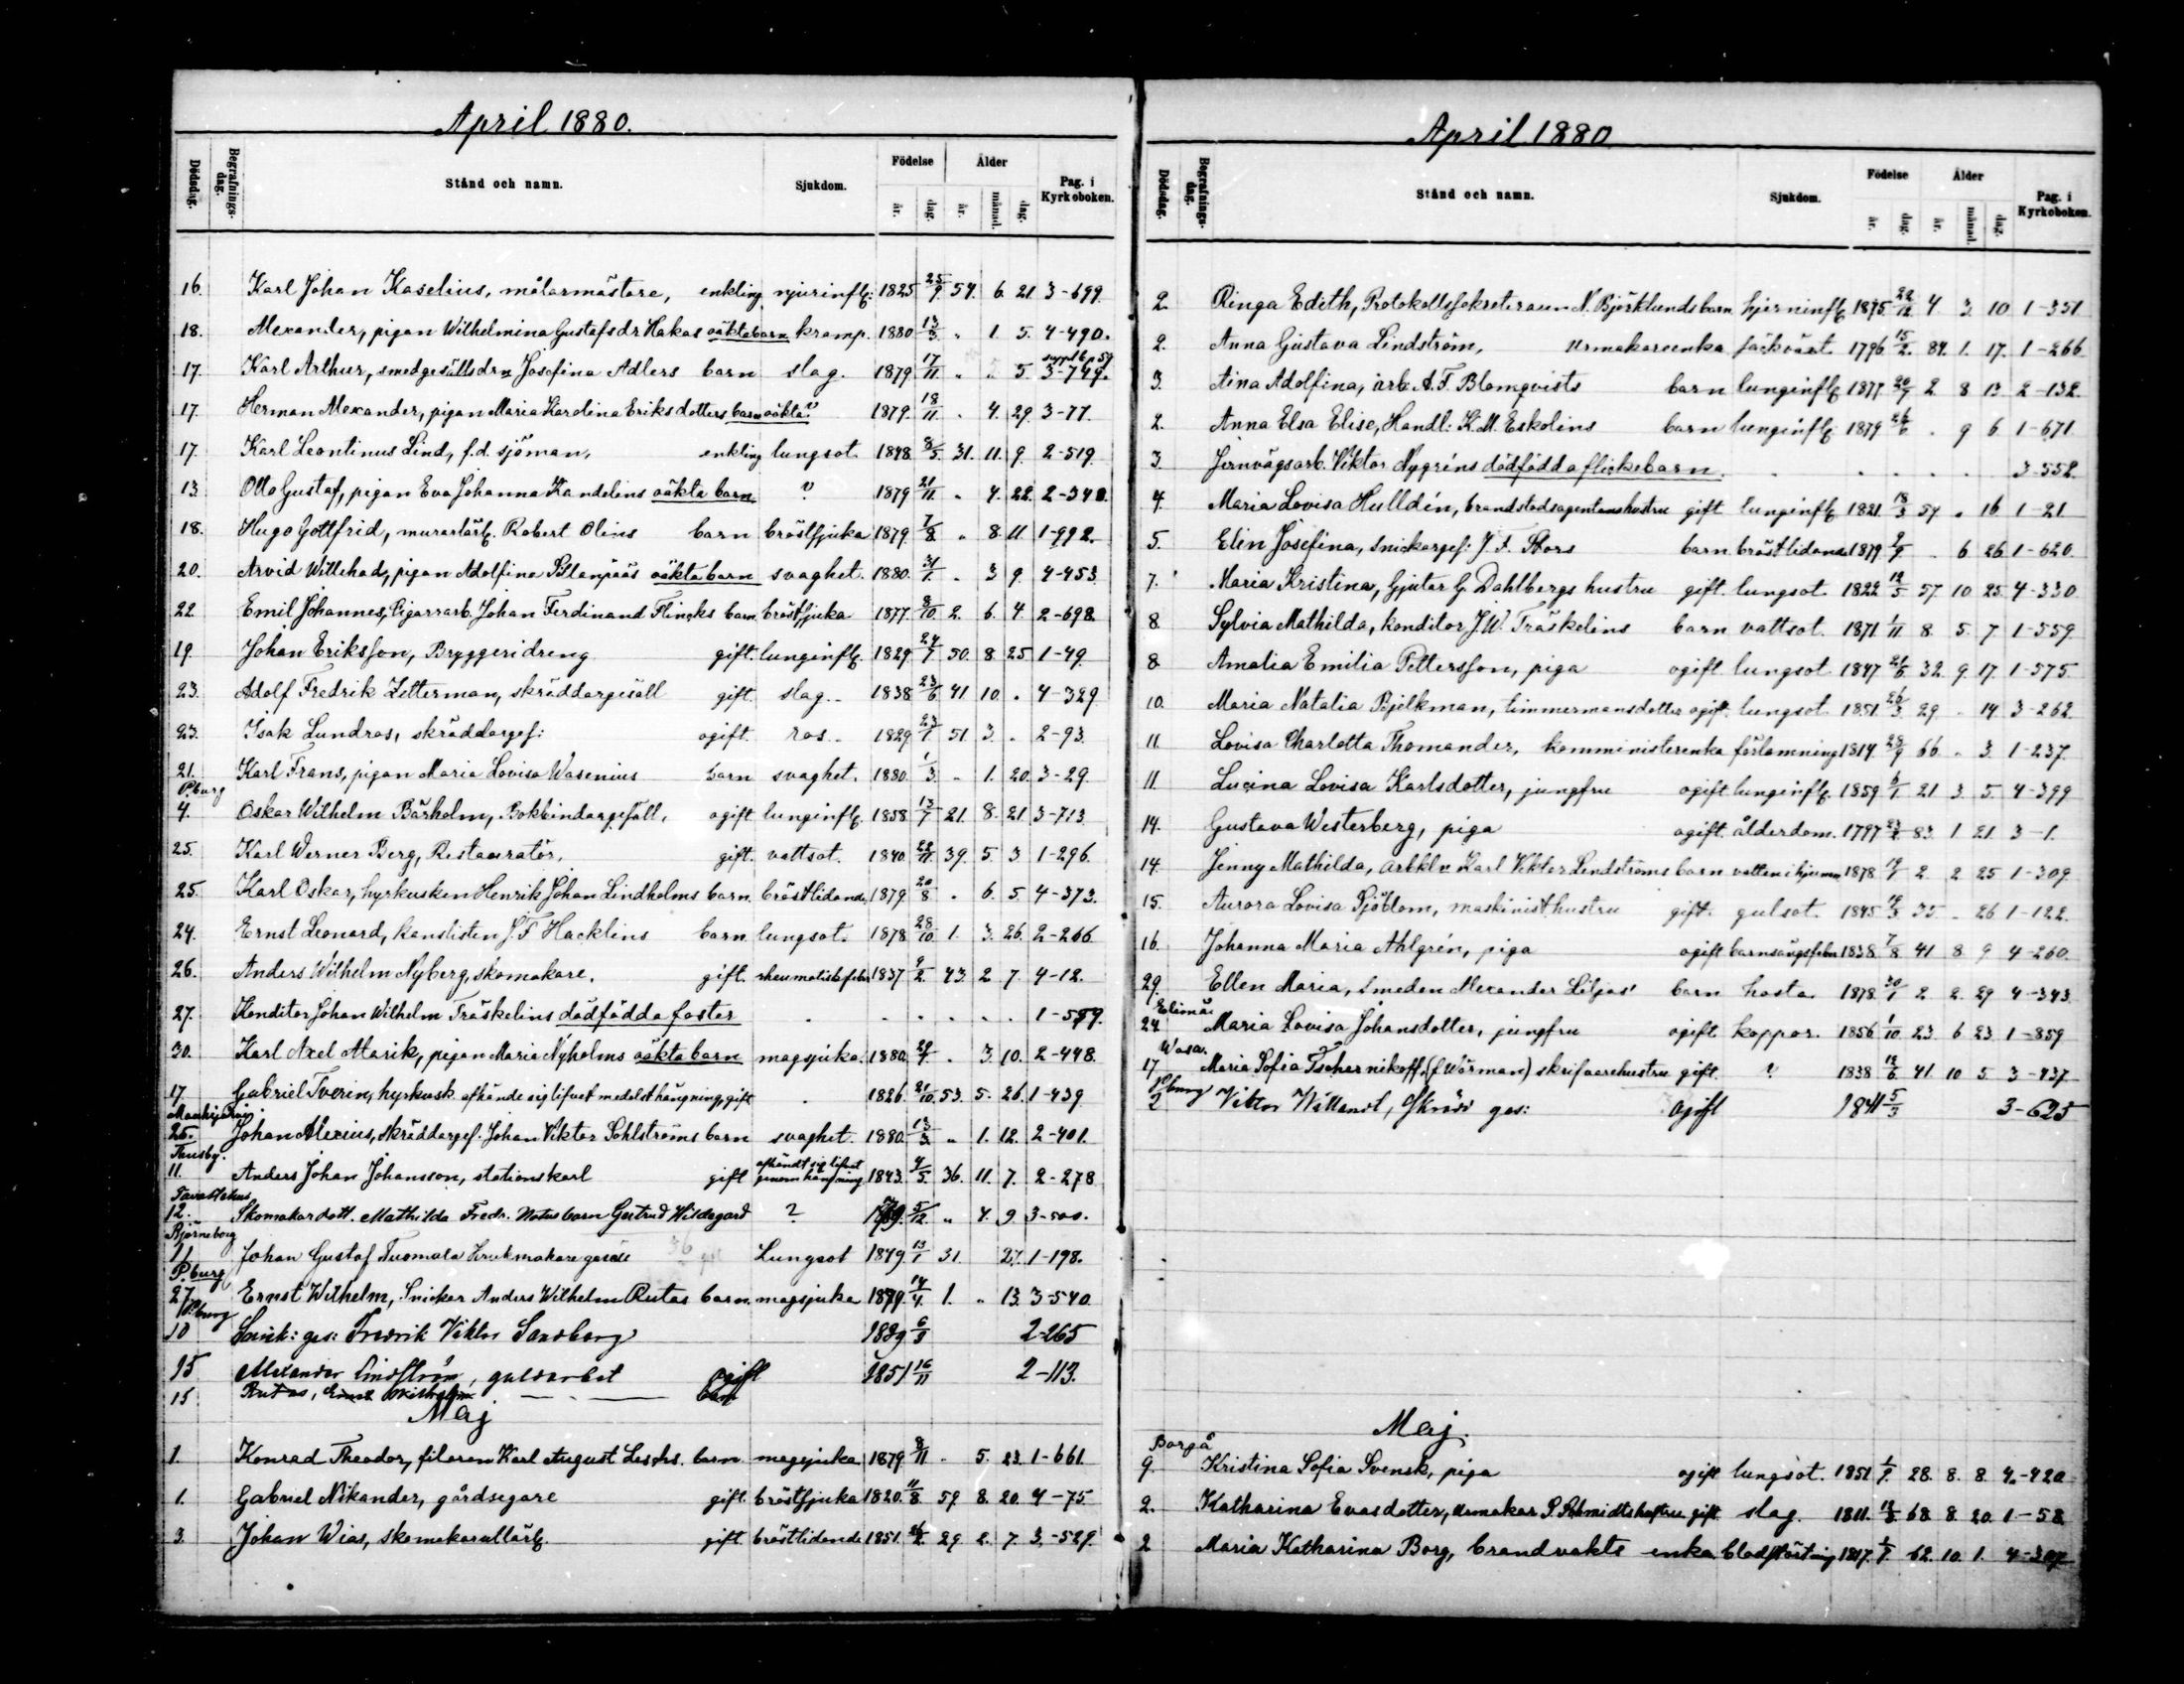 April 1880.
Dödsdag. Begrafnings-dag. Stånd och namn. Sjukdom. Födelse år. dag. Ålder år. månad. dag. Pag. i Kyrkoboken.
16. Karl Johan Kaselius, målarmästare, enkling njurinfl: 1825 25/9 54. 6. 21 3-699.
18. Alexander, pigan Wilhelmina Gustafsdr Hakas oäkta barn kramp. 1880 13/3 „ 1. 5. 4-490.
17. Karl Arthur, smedgesälls dr Josefina Adlers barn slag. 1879 17/11 „ 5. 3-749. suppl 6 p 59
17. Herman Alexander, pigan Maria Karolina Eriksdotters barn oäkta ? 1879. 18/11. „ 4. 29. 3-77.
17. Karl Leontinus Lind, f.d. sjöman, enkling lungsot. 1848. 8/5. 31. 11. 9. 2-519.
13. Otto Gustaf, pigan Eva Johanna Kandelins oäkta barn ? 1879 21/11. „ 4. 22. 2-340.
18. Hugo Gottfrid, murarlärl. Robert Olins barn bröstsjuka 1879. 7/8. „ 8. 11. 1-992.
20. Arvid Willehad, pigan Adolfina Blanpääs oäkta barn svaghet. 1880. 31/1. „ 3 9. 4-453.
22. Emil Johannes, Cigarrarb. Johan Ferdinand Flincks barn. bröstsjuka 1877. 8/10. 2. 6. 4. 2-698.
19. Johan Eriksson, Bryggeridreng gift. lunginfl. 1829. 24/7 50. 8. 25 1-49.
23. Adolf Fredrik Zitterman, skräddargesäll gift. slag. 1838 23/6 41 10. „ 4-329
23. Isak Lundros, skräddarges: ogift. ros. 1829. 23/1 51 3. „ 2-93.
21. Karl Frans, pigan Maria Lovisa Wasenius barn svaghet. 1880. 1/3. „ 1. 20. 3-29.
P.burg
4. Oskar Wilhelm Bärholm, Bokbindargesäll, ogift lunginfl. 1858 13/7 21. 8. 21 3-713
25. Karl Werner Berg, Restauratör, gift. vattsot. 1840. 22/11. 39. 5. 3 1-296.
25. Karl Oskar, hyrkusken Henrik Johan Lindholms barn. bröstlidande 1879. 20/8. „ 6. 5. 4-373.
24. Ernst Leonard, kanslisten J. F. Hacklins barn lungsot. 1878 28/10. 1. 3. 26. 2-266.
26. Anders Wilhelm Nyberg, skomakare. gift. rheumatisk feber 1837 9/2. 43. 2 7. 4-12.
27. Konditor Johan Wilhelm Träskelins dödfödda foster . . . . . . 1-559.
30. Karl Axel Alarik, pigan Maria Nyholms oäkta barn magsjuka. 1880. . 3. 10. 2-448.
17. Gabriel Tverin, hyrkusk afhände sig lifvet medelst hängning, gift . 1826. 21/10. 53. 5. 26. 1-439.
25. Johan Alexius, skräddarges. Johan Viktor Sohlströms barn svaghet. 1880. 13/3. „ 1. 12. 2-401.
Tensby.
11. Anders Johan Johansson, stationskarl gift afhändt sig lifvet genom hängning 1843. 4/5. 36. 11. 7. 2-278.
Tavastehus
12. Skomakar dott. Mathilda Fredr. Notus barn Gertrud Hildegard ? 1879. 5/12. „ 4. 9. 3-500.
Björneborg
11 Johan Gustaf Tuomala Krukmakare gesäll Lungsot 1849. 13/1 31. 27. 1-198.
P.burg
27 Ernst Wilhelm, Snickar Anders Wilhelm Rutas barn. magsjuka 1879. 14/4. 1. „ 13. 3-540.
P.burg
10 Snick: ges: Fredrik Viktor Sandberg 1839 6/9 2-265
15 Alexander Lindström, guldarbet ogift 1851 16/11 2-113.
15 Rutas, Ernst Wilhelm barn
Maj
1. Konrad Theodor, filaren Karl August Leschs. barn magsjuka 1879 8/11 . 5. 23. 1-661.
1. Gabriel Nikander, gårdsegare gift. bröstsjuka 1820. 11/8. 59. 8. 20. 4-75.
3. Johan Wias, skomakarallärl. gift. bröstlidande 1851. 26/2. 29. 2. 7. 3-529.
April 1880
Dödsdag. Begrafnings-dag. Stånd och namn. Sjukdom. Födelse år. dag. Ålder år. månad. dag. Pag. i Kyrkoboken.
2. Ringa Edith, Protokollssekreteraren N. Björklunds barn hjerninfl. 1875. 22/12 4 3. 10 1-351
2. Anna Gustava Lindström, urmakareenka 1796. 15/2. 84. 1. 17. 1-266.
3. Aina Adolfina, arb. A. F. Blomqvists barn lunginfl. 1877. 20/7 2 8 13. 2-132.
2. Anna Elsa Elise, Handl: K. M. Eskolins barn lunginfl. 1879 26/6 . 9 6. 1-671.
3. Jernvägsarb. Viktor Nygréns dödfödda flickebarn. . . . . . 3-552.
4. Maria Lovisa Hulldén, brandstodsagentens hustru gift lunginfl. 1821. 18/3 59 „ 16. 1-21.
5. Elin Josefina, Snickarges: J. F. Stors barn bröstlidande 1879. 9/9. „ 6. 26. 1-620.
7. Maria Kristina, Gjutar G. Dahlbergs hustru gift. lungsot. 1822 12/5 57. 10 25. 4-330.
8. Sylvia Mathilda, konditor J. W. Träskelins barn vattsot. 1871. 1/11 8. 5. 7 1-559.
8. Amalia Emilia Pettersson, piga ogift lungsot. 1847 21/6 32 9. 17. 1-575.
10. Maria Natalia Bjelkman, timmermansdotter ogift. lungsot. 1851. 26/3. 29. „ 14. 3-262.
11. Lovisa Charlotta Thomander, komministerenka förlamning 1814 28/9 66. „ 3. 1-237.
11. Lucina Lovisa Karlsdotter, jungfru ogift lunginfl. 1859 6/1 21 3. 5. 4-399
14. Gustava Westerberg, piga ogift. ålderdom. 1797 23/2 83. 1 21. 3-1.
14. Jenny Mathilda, Karl Viktor Lindströms barn vatten i hjernan 1878 19/1 2. 2 25 1-309.
15. Aurora Lovisa Sjöblom, maskinisthustru gift. gulsot. 1845. 19/3 35. „ 26 1-122.
16. Johanna Maria Ahlgrén, piga ogift barnsängsfeber 1838 7/8 41 8 9 4-260.
29. Ellen Maria, smeden Alexander Liljas' barn hosta. 1878. 30/1 2. 2. 29 4-343.
Elimä
24. Maria Lovisa Johansdotter, jungfru ogift koppor. 1856 1/10 23. 6 23. 1-859
Wasa.
17 Maria Sofia Tschernikoff, (f. Wörman) skrifvarehustru gift. ? 1838 12/6 41 10 5. 3-437.
P.burg
2 Viktor Willandt, Skrädd ges: ogift 1841 5/3 3-625
Maj.
Borgå
9. Kristina Sofia Svensk, piga ogift lungsot. 1851. 1/9. 28. 8. 8. 4-420.
2. Katharina Evasdotter, urmakar P. Schmidts hustru gift slag. 1811. 12/8 68. 8. 20. 1-58.
2. Maria Katharina Borg, brandvakts enka. blodstörtning 1817. 1/7. 62. 10. 1. 4-307.